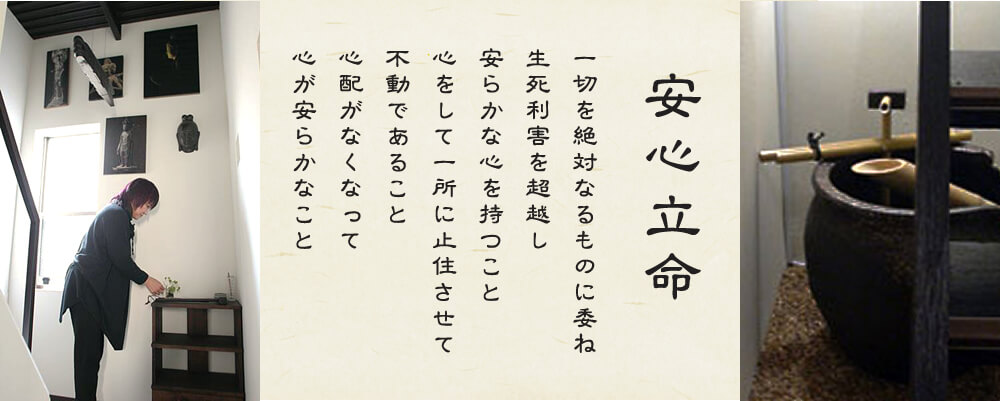 安心立命
一切を絶対なるものに委ね
生死利害を超越し
安らかな心を持つこと
心をして一所に止住させて
不動であること
心配がなくなって
心が安らかなこと